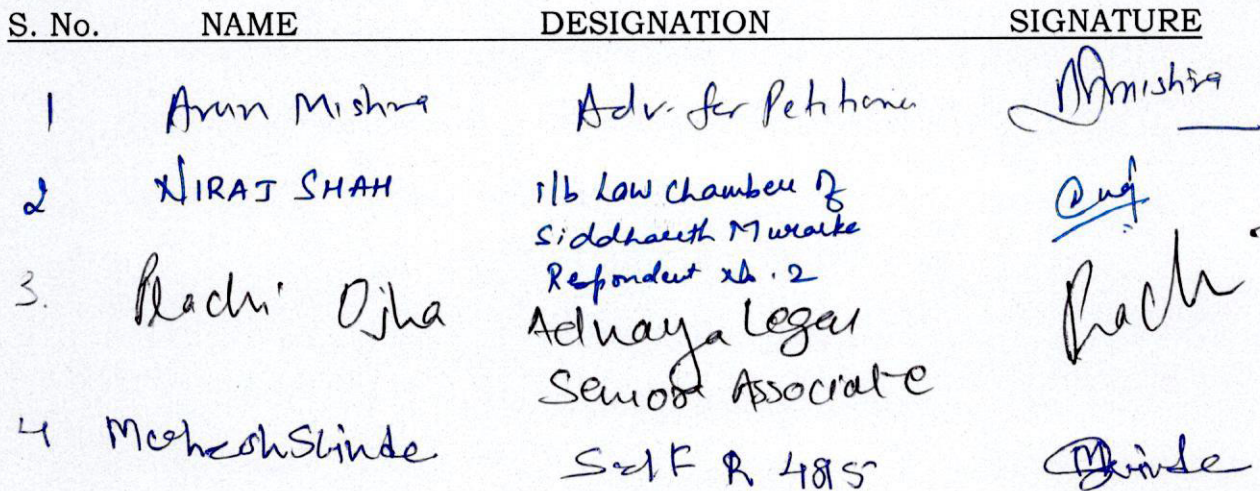 S. No. NAME DESIGNATION SIGNATURE
1 Arun Mishra Adv. for Petitioner Mishra
2 NIRAJ SHAH i/b Law Chamber of
Siddharth Murarka
Respondent No. 2
3. Prachi Ojha Legal Prachi
Senior Associate
4 Mahesh Shinde Self R 4&5 Shinde